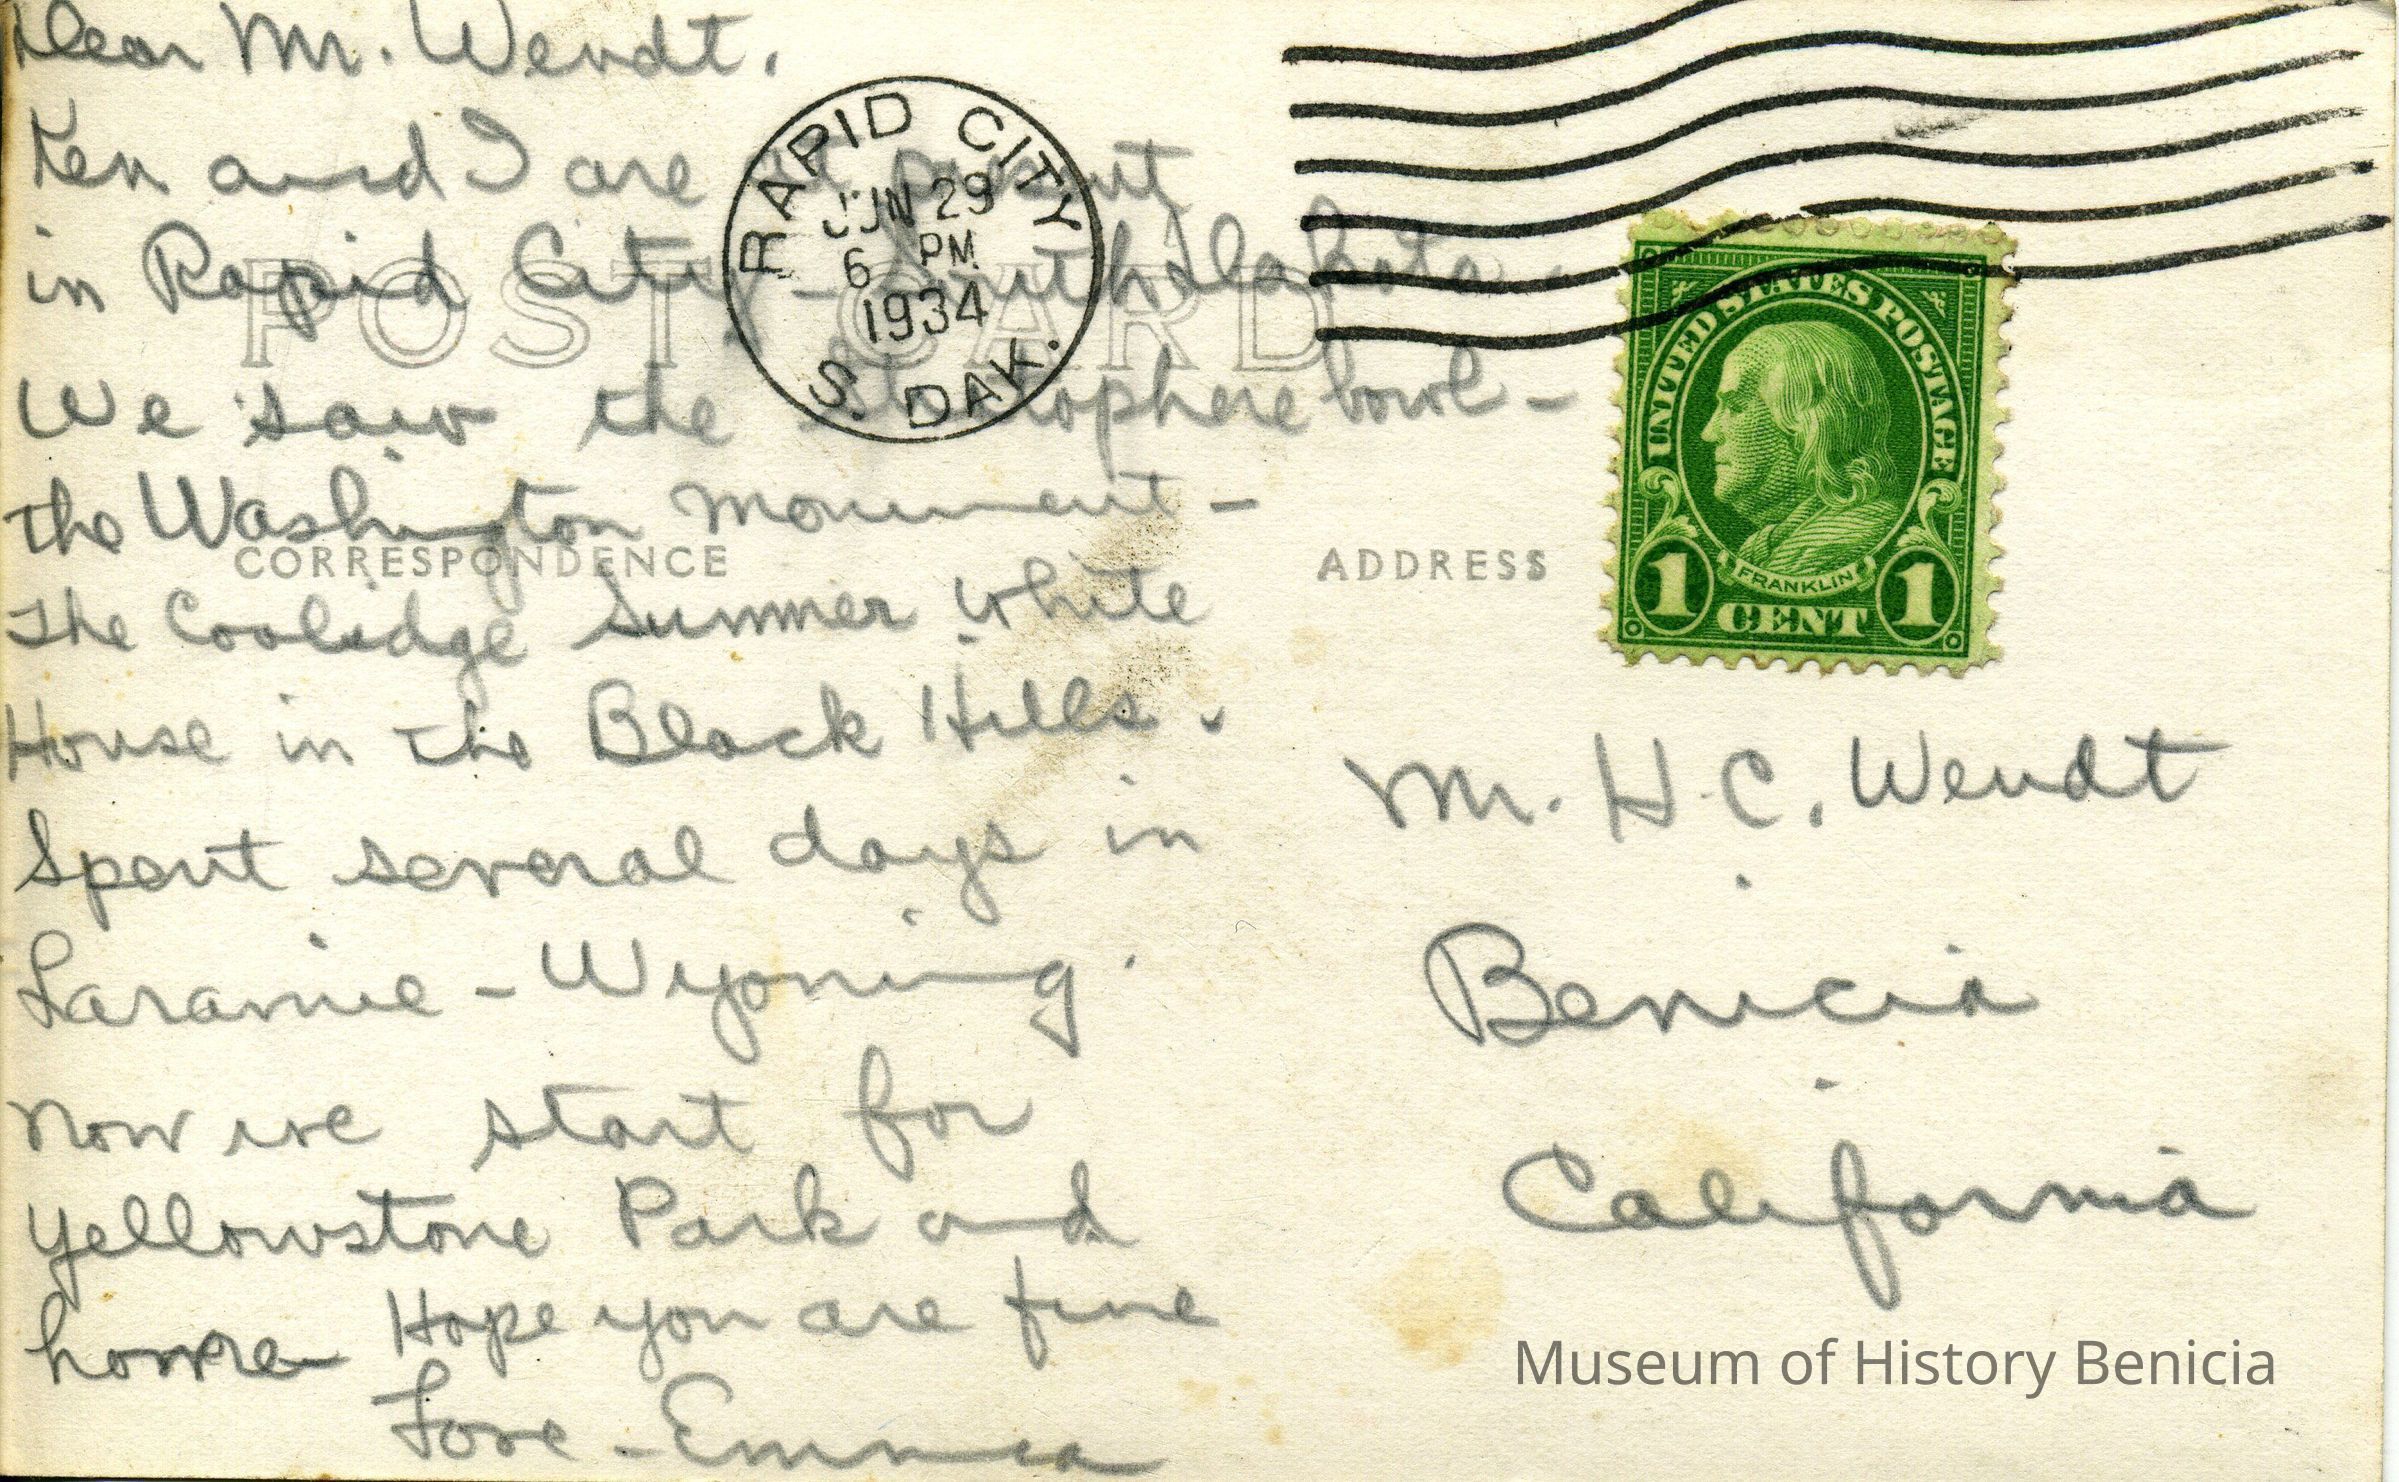 Dear Mr. Wendt.
Ken and I are at present
in Rapid City - South Dakota.
We saw the Stratosphere bowl -
the Washington monument -
The Coolidge Summer White
House in the Black Hills.
Spent several days in
Laramie - Wyoming.
Now we start for
Yellowstone Park and
home Hope you are fine
Love - Emma
POST CARD
CORRESPONDENCE
ADDRESS
RAPID CITY
JUN 29
6 PM
1934
S. DAK.
UNITED STATES POSTAGE
FRANKLIN
1 CENT 1
Mr. H. C. Wendt
Benicia
California
Museum of History Benicia